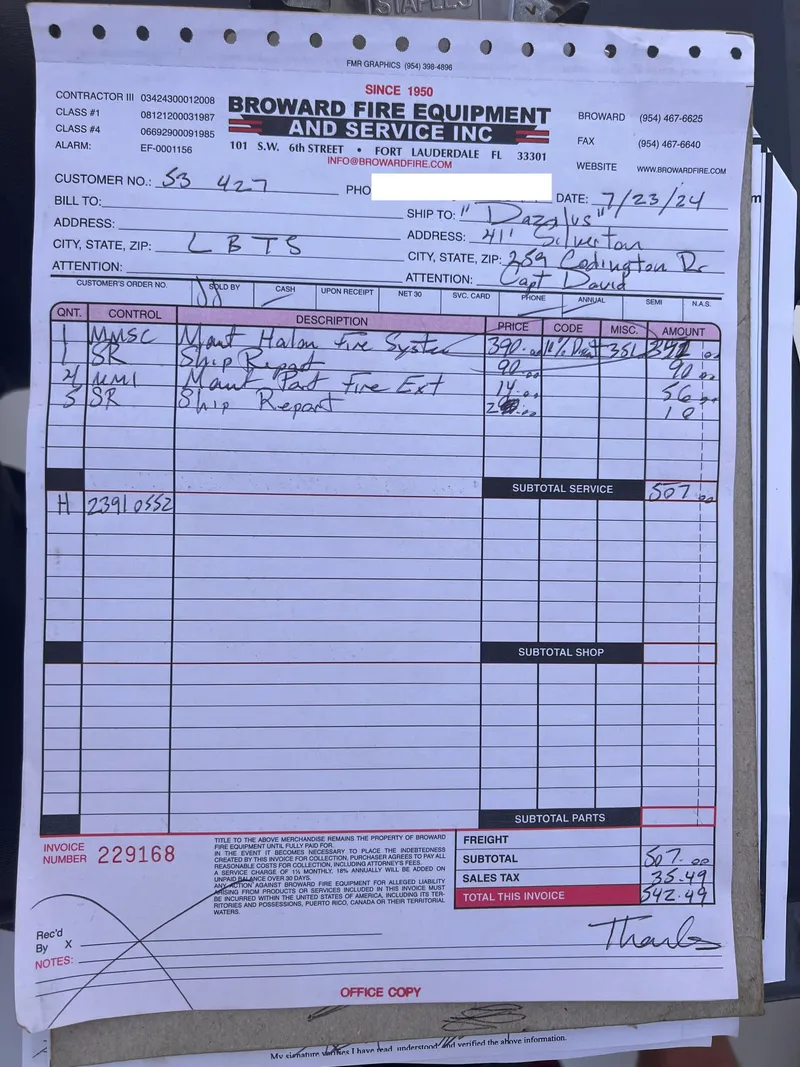 STAPLES
FMR GRAPHICS (954) 398-4896
SINCE 1950
BROWARD FIRE EQUIPMENT
AND SERVICE INC
101 S.W. 6th STREET • FORT LAUDERDALE FL 33301
INFO@BROWARDFIRE.COM
CONTRACTOR III 03424300012008
CLASS #1 08121200031987
CLASS #4 06692900091985
ALARM: EF-0001156
BROWARD (954) 467-6625
FAX (954) 467-6640
WEBSITE WWW.BROWARDFIRE.COM
CUSTOMER NO.: 53 427 PHO DATE: 7/23/24
BILL TO: SHIP TO: "Dazalus"
ADDRESS: ADDRESS: 41' Silverton
CITY, STATE, ZIP: LBTS CITY, STATE, ZIP: 259 Codington Dr
ATTENTION: ATTENTION: Capt David
CUSTOMER'S ORDER NO. SOLD BY CASH UPON RECEIPT NET 30 SVC. CARD PHONE ANNUAL SEMI N.A.S.
QNT. CONTROL DESCRIPTION PRICE CODE MISC. AMOUNT
1 MMSC Maint Halon Fire System 390.00 10% 351
1 SR Ship Report 90.00 90.00
4 MM1 Maint Port Fire Ext 14.00 56.00
5 SR Ship Report 2 .00 10
SUBTOTAL SERVICE 507.00
H 23910552
SUBTOTAL SHOP
SUBTOTAL PARTS
INVOICE NUMBER 229168
TITLE TO THE ABOVE MERCHANDISE REMAINS THE PROPERTY OF BROWARD
FIRE EQUIPMENT UNTIL FULLY PAID FOR.
IN THE EVENT IT BECOMES NECESSARY TO PLACE THE INDEBTEDNESS
CREATED BY THIS INVOICE FOR COLLECTION, PURCHASER AGREES TO PAY ALL
REASONABLE COSTS FOR COLLECTION, INCLUDING ATTORNEY'S FEES.
A SERVICE CHARGE OF 1½ MONTHLY. 18% ANNUALLY WILL BE ADDED ON
UNPAID BALANCE OVER 30 DAYS.
ANY ACTION AGAINST BROWARD FIRE EQUIPMENT FOR ALLEGED LIABILITY
ARISING FROM PRODUCTS OR SERVICES INCLUDED IN THIS INVOICE MUST
BE INCURRED WITHIN THE UNITED STATES OF AMERICA, INCLUDING ITS TER-
RITORIES AND POSSESSIONS, PUERTO RICO, CANADA OR THEIR TERRITORIAL
WATERS.
FREIGHT
SUBTOTAL 507.00
SALES TAX 35.49
TOTAL THIS INVOICE 542.49
Rec'd
By X
NOTES:
Thanks
OFFICE COPY
My signature verifies I have read, understood and verified the above information.